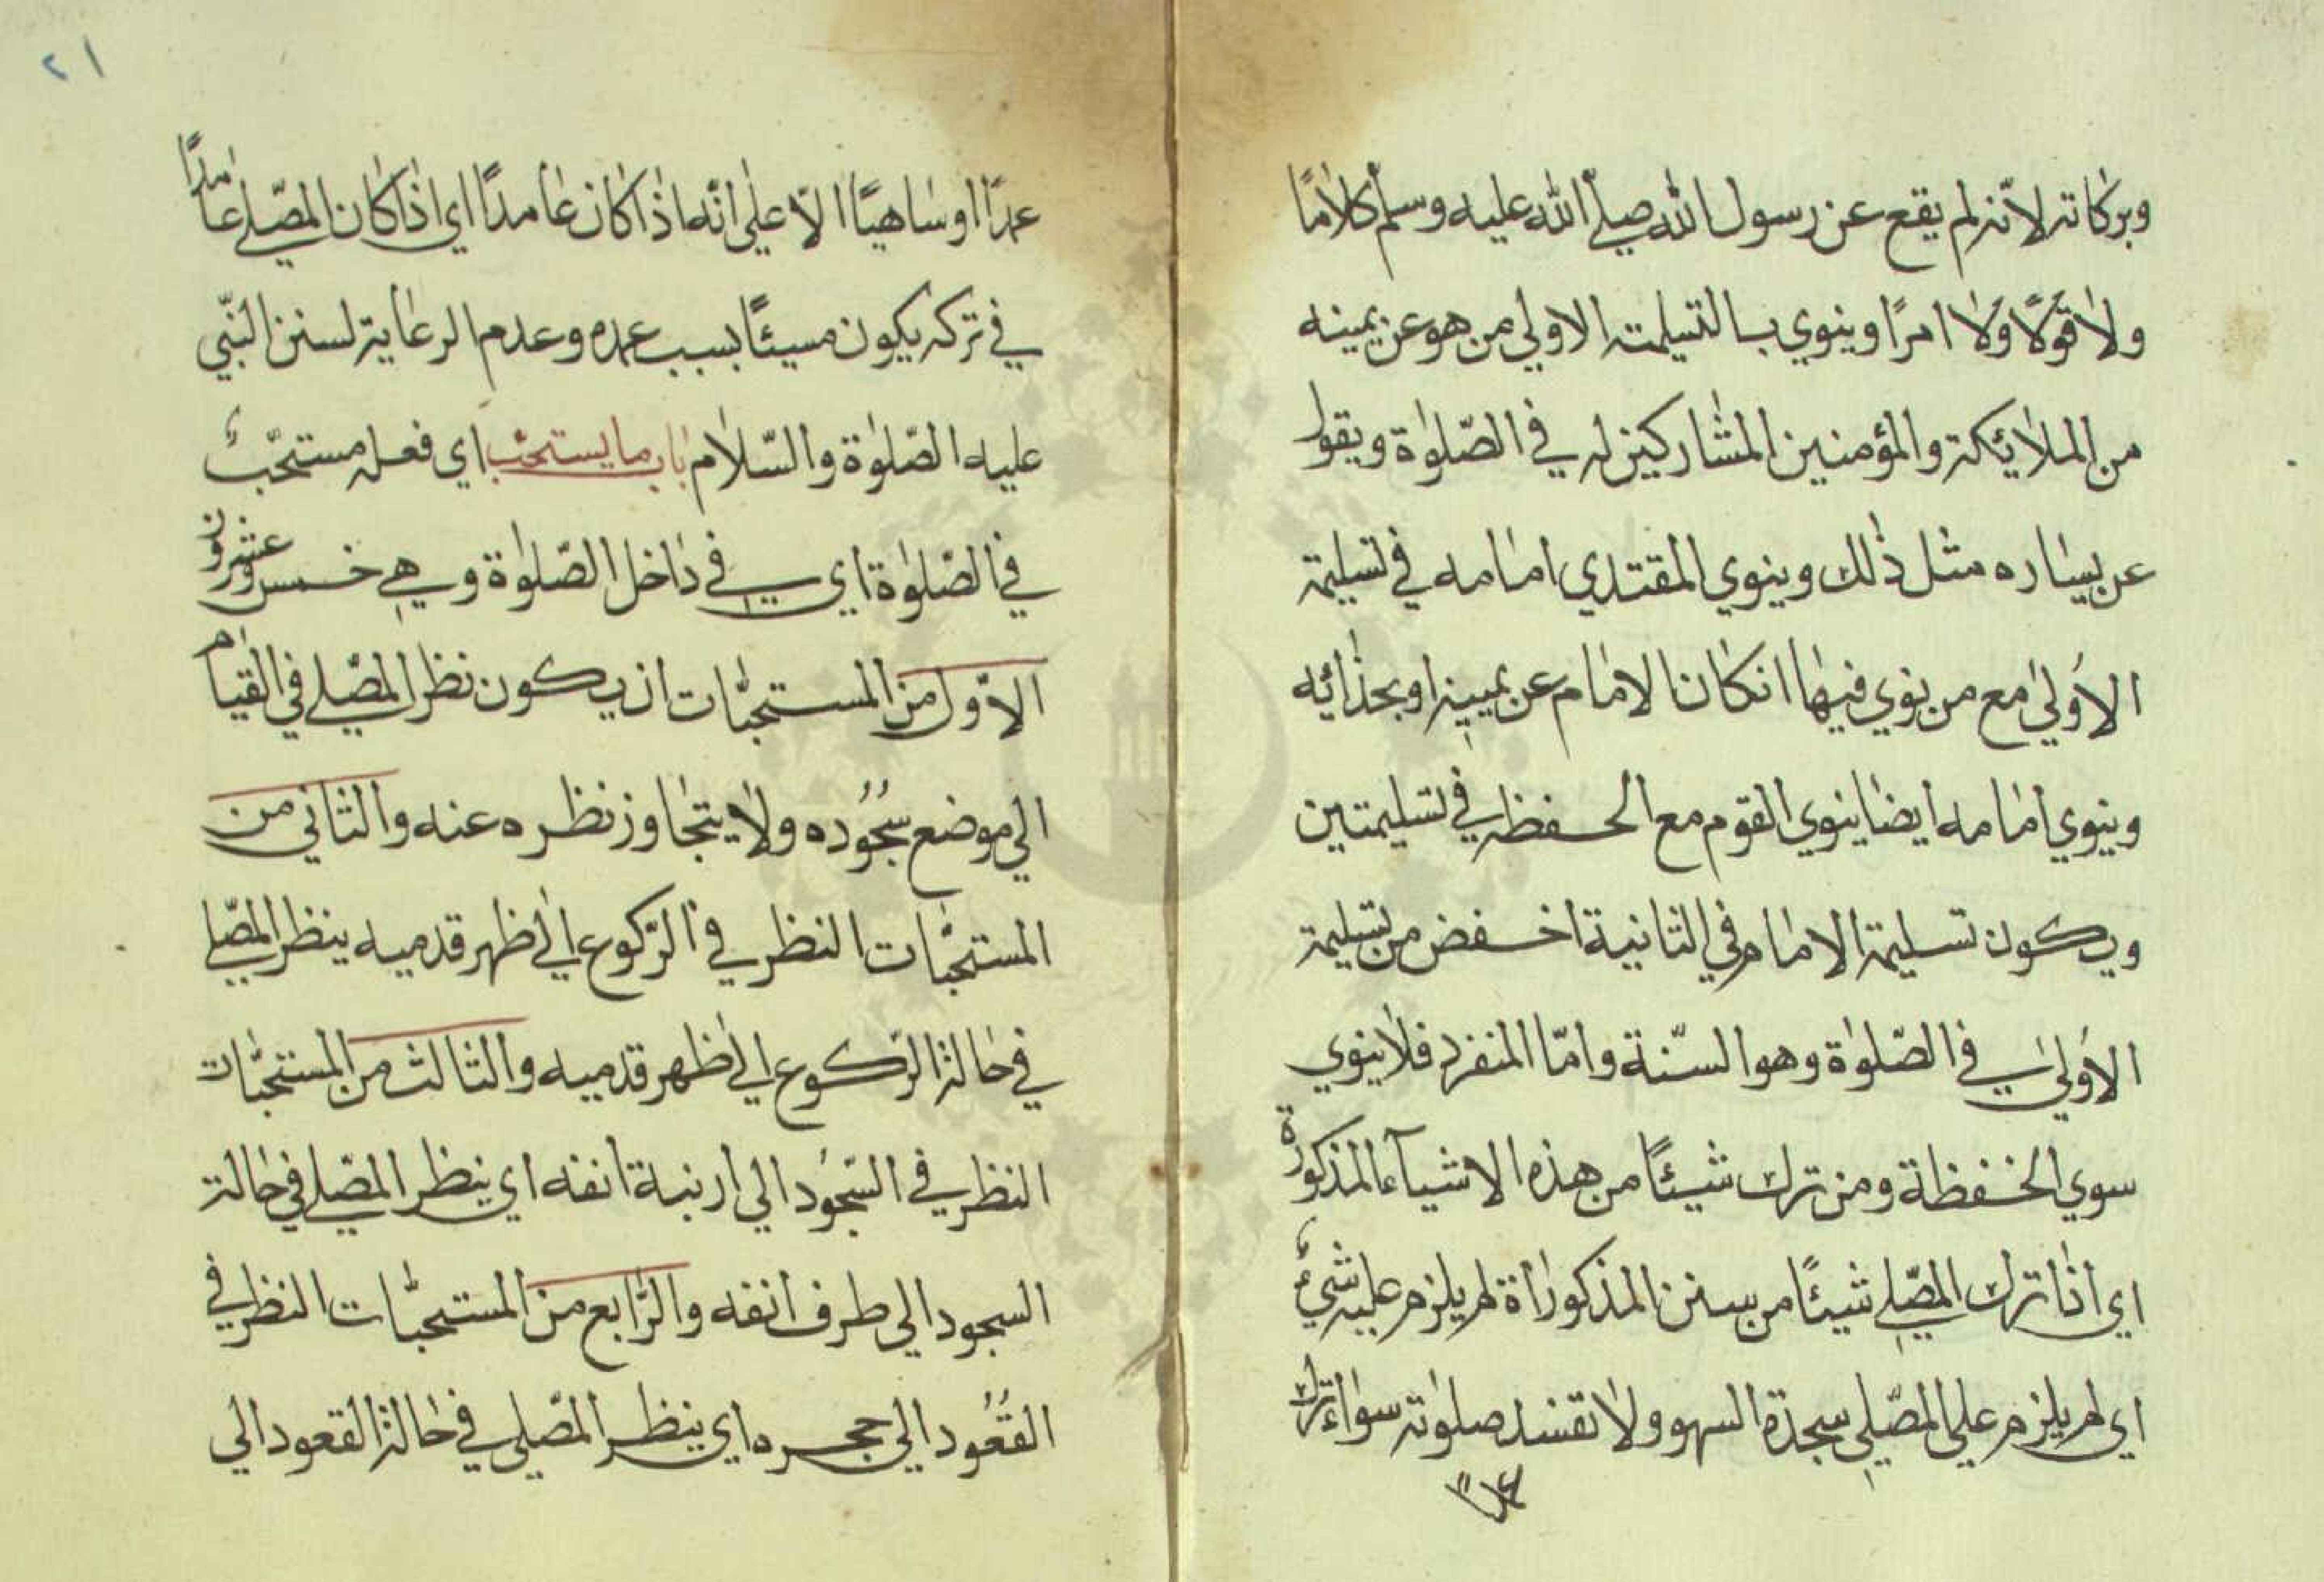 وبركاته لانّه لم يقع عن رسول الله صلي الله عليه وسلم كلامًا
ولا قولًا ولا امرًا وينوي بالتسليمة الاولي من هو عن يمينه
من الملائكة والمؤمنين المشاركين له في الصّلوٰة ويقول
عن يساره مثل ذلك وينوي المقتدي امامه في تسليمة
الاُولي مع من ينوي فيها انكان الامام عن يمينه او بحذائه
وينوي امامه ايضا ينوي القوم مع الحفظة في تسليمتين
ويكون تسليمة الامام في الثانية اخفض من تسليمة
الاُولي في الصّلوٰة وهو السّنة وامّا المنفرد فلا ينوي
سوي الحفظة ومن ترك شيئًا من هذه الاشيآء المذكورة
اي اذا ترك المصّلي شيئًا من سنن المذكوراة لم يلزم عليه شيءٌ
اي لم يلزم علي المصّلي سجدة السهو ولا تفسد صلوٰته سواء ترك
عمدًا
٢١
عمدًا او ساهيًا الّا علي انّه اذا كان عامدًا اي اذا كان المصّلي عامدًا
في تركه يكون مسيئًا بسبب عمده وعدم الرعاية لسنن النّبي
عليه الصّلوٰة والسّلام باب ما يستحب اي فعله مستحّبٌ
في الصّلوٰة اي في داخل الصّلوٰة وهي خمس وعشرون
الاّول من المستحبّات ان يكون نظر المصّلي في القيام
الي موضع سُجُوده ولا يتجاوز نظره عنه والثاني من
المستحبّات النظر في الرّكوع الي ظهر قدميه ينظر المصّلي
في حالة الرّكوع الي ظهر قدميه والثالث من المستحبّات
النظر في السّجُود الي ارنبة انفه اي ينظر المصّلي في حالة
السجود الي طرف انفه والرّابع من المستحبّات النظر في
القُعُود الي حجره اي ينظر المصّلي في حالة القعود الي